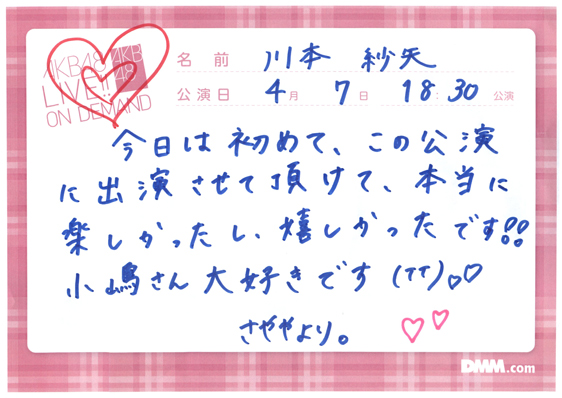 AKB48 AKB48
LIVE!!
ON DEMAND
名前 川本 紗矢
公演日 4月 7日 18:30 公演
今日は初めて、この公演
に出演させて頂けて、本当に
楽しかったし、嬉しかったです!!
小嶋さん大好きです(TT)♡♡
さややより。♡♡
DMM.com